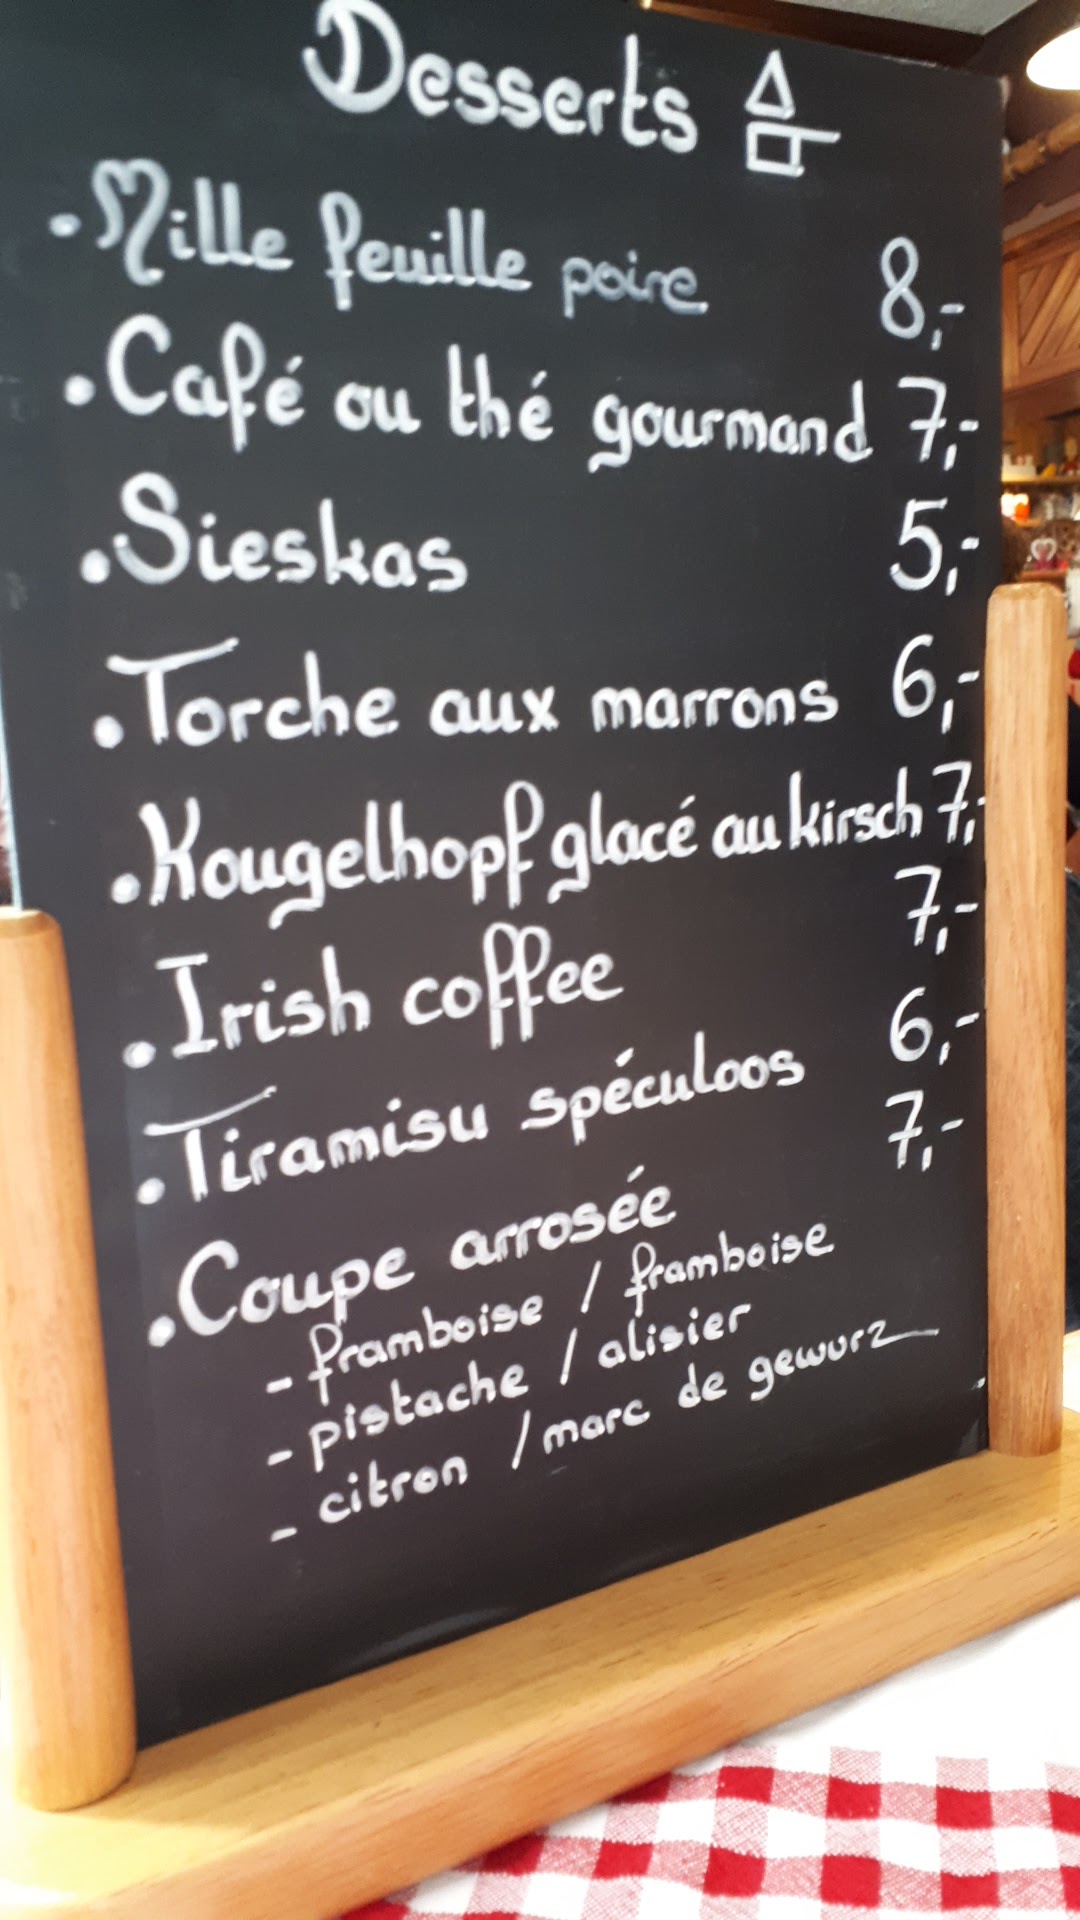 Desserts
• Mille feuille poire 8,-
• Café ou thé gourmand 7,-
• Sieskas 5,-
• Torche aux marrons 6,-
• Kougelhopf glacé au kirsch 7,-
• Irish coffee 7,-
• Tiramisu spéculoos 6,-
• Coupe arrosée 7,-
- framboise / framboise
- pistache / alisier
- citron / marc de gewurz